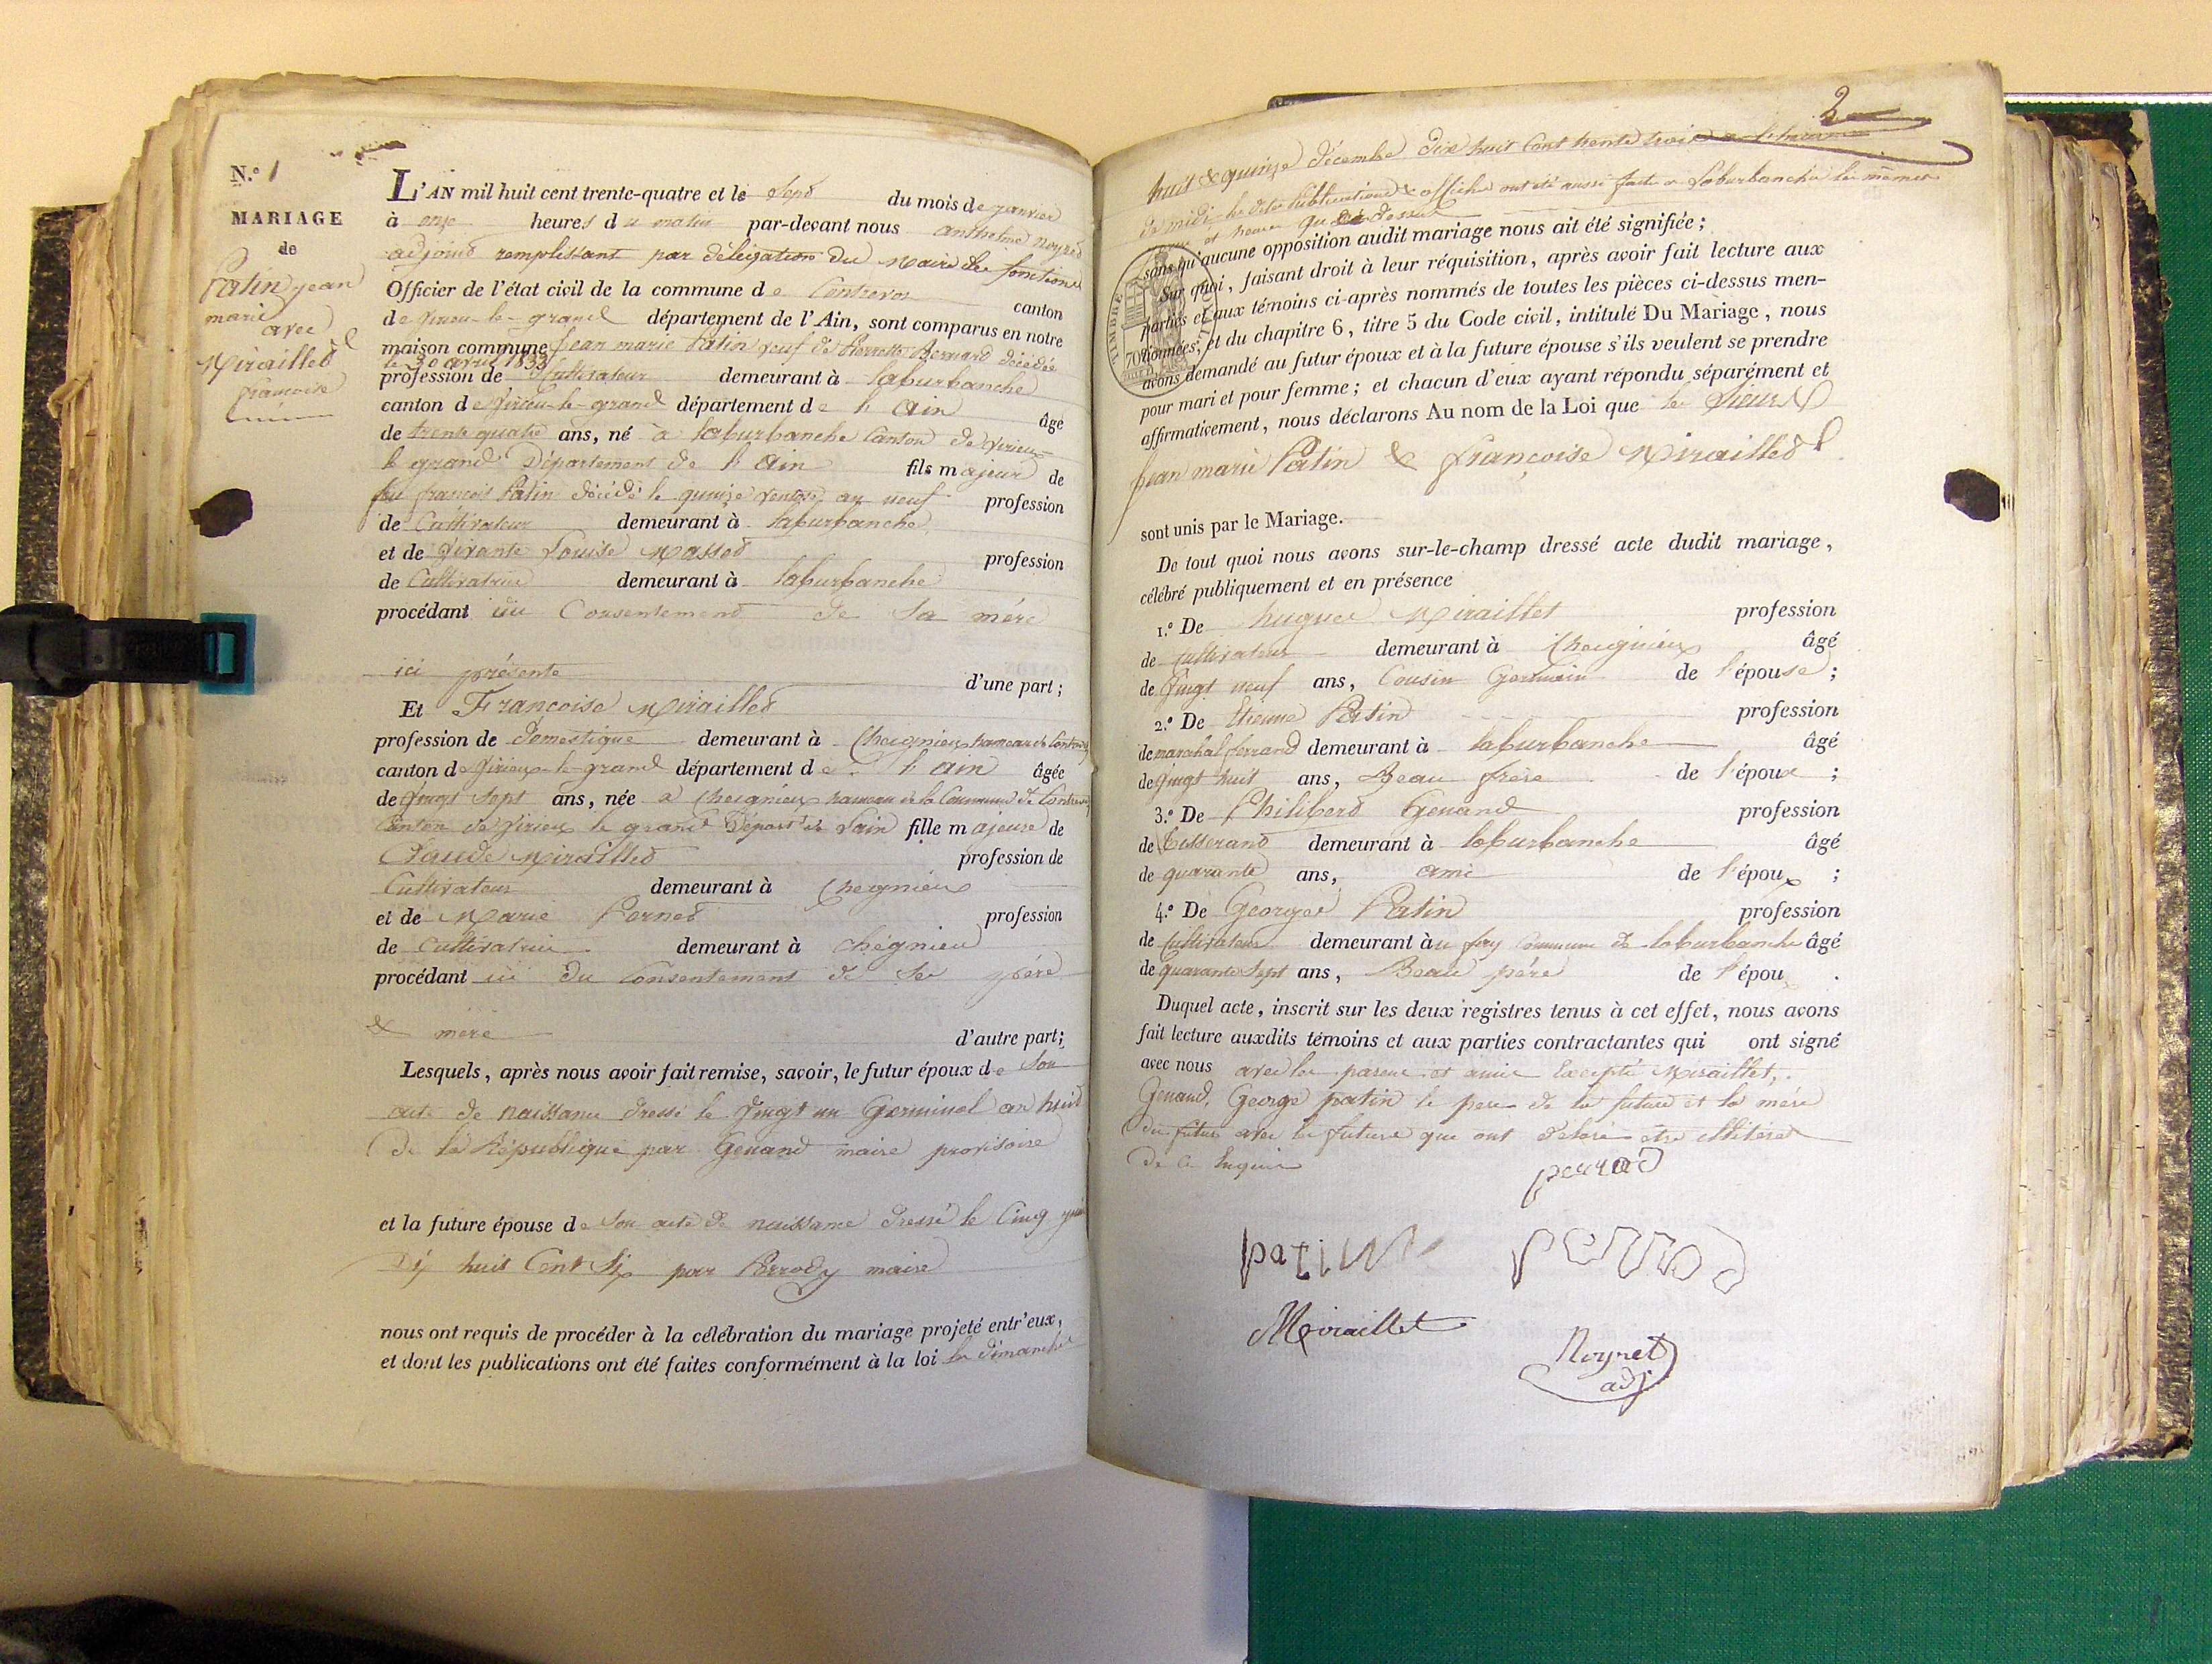 N.º 1
MARIAGE
de
Patin jean
marie
avec
Miraillet
françoise
L'AN mil huit cent trente-quatre et le sept du mois de janvier
à onze heures du matin par-devant nous anthelme noyret
adjoint remplissant par délégation du maire les fonctions
Officier de l'état civil de la commune de Contrevoz canton
de virieu-le-grand département de l'Ain, sont comparus en notre
maison commune jean marie Patin veuf de Pierrette Bernard décédée
le 30 avril 1833
profession de Cultivateur demeurant à laburbanche
canton de Virieu-le-grand département de l'Ain âgé
de trente quatre ans, né à laburbanche Canton de virieu
le grand Département de l'Ain fils majeur de
feu françois Patin décédé le quinze ventose an neuf profession
de Cultivateur demeurant à laburbanche
et de Vivante Louise Masset profession
de Cultivatrice demeurant à laburbanche
procédant du Consentement de Sa mére
ici présente d'une part;
Et Françoise Miraillet
profession de domestique demeurant à Cheignieu hameau de Contrevoz
canton de Virieu-le-grand département de l'ain âgée
de Vingt Sept ans, née a Cheignieu hameau de la Commune de Contrevoz
Canton de Virieu le grand Départ de Lain fille majeure de
Claude Miraillet profession de
Cultivateur demeurant à Cheignieu
et de Marie Pernet profession
de Cultivatrice demeurant à Chégnieu
procédant ici du Consentement de Ses pére
& mére d'autre part;
Lesquels, après nous avoir fait remise, savoir, le futur époux de Son
acte de naissance dressé le Vingt un Germinal an huit
de la République par Genand maire provisoire
et la future épouse de Son acte de naissance dressé le Cinq juin
Dix huit Cent Six par Perrody maire
nous ont requis de procéder à la célébration du mariage projeté entr'eux,
et dont les publications ont été faites conformément à la loi les dimanche
2
huit & quinze décembre dixe huit Cent trente trois
de midi les dites publications & affiches ont été aussi faite a Laburbanche les mêmes
jour et heures que dessus
TIMBRE ROYAL
70
sans qu'aucune opposition audit mariage nous ait été signifiée;
Sur quoi, faisant droit à leur réquisition, après avoir fait lecture aux
parties et aux témoins ci-après nommés de toutes les pièces ci-dessus men-
tionnées, et du chapitre 6, titre 5 du Code civil, intitulé Du Mariage, nous
avons demandé au futur époux et à la future épouse s'ils veulent se prendre
pour mari et pour femme; et chacun d'eux ayant répondu séparément et
affirmativement, nous déclarons Au nom de la Loi que le Sieur
jean marie Patin & françoise Miraillet
sont unis par le Mariage.
De tout quoi nous avons sur-le-champ dressé acte dudit mariage,
célébré publiquement et en présence
1.º De hugues Miraillet profession
de Cultivateur demeurant à Cheignieu âgé
de Vingt neuf ans, Cousin Germain de l'épouse;
2.º De Etienne Patin profession
de marechal ferrand demeurant à laburbanche âgé
de Vingt huit ans, Beau frère de l'époux;
3.º De Philiberd Genand profession
de tisserand demeurant à laburbanche âgé
de quarante ans, ami de l'époux;
4.º De George Patin profession
de Cultivateur demeurant àu fay Commune de laburbanche âgé
de quarante Sept ans, Beau pére de l'épou.
Duquel acte, inscrit sur les deux registres tenus à cet effet, nous avons
fait lecture auxdits témoins et aux parties contractantes qui ont signé
avec nous avec les parens et amis Excepté Miraillet,
Genand, George patin le pere de la future et la mére
du futur avec la future qui ont declaré etre illitérés
de ce Enquis
perrod
patin
perrod
Miraillet
Noyret
adj